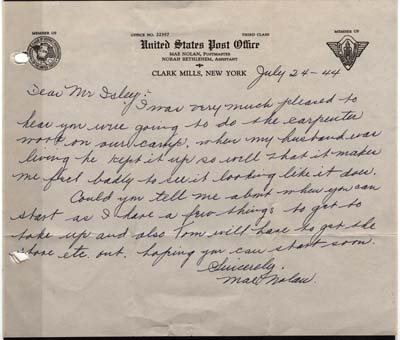 MEMBER OF
OFFICE NO. 22357 THIRD CLASS
MEMBER OF
United States Post Office
MAE NOLAN, POSTMASTER
NORAH BETHLEHEM, ASSISTANT
CLARK MILLS, NEW YORK
July 24-44
Dear Mr Isley:-
I was very much pleased to
hear you were going to do the carpenter
work on our camp, when my husband was
living he kept it up so well that it makes
me feel badly to see it looking like it does.
Could you tell me about when you can
start as I have a few things to get to
take up and also Tom will have to get the
stove etc. out. hoping you can start soon.
Sincerely,
Mae Nolan.